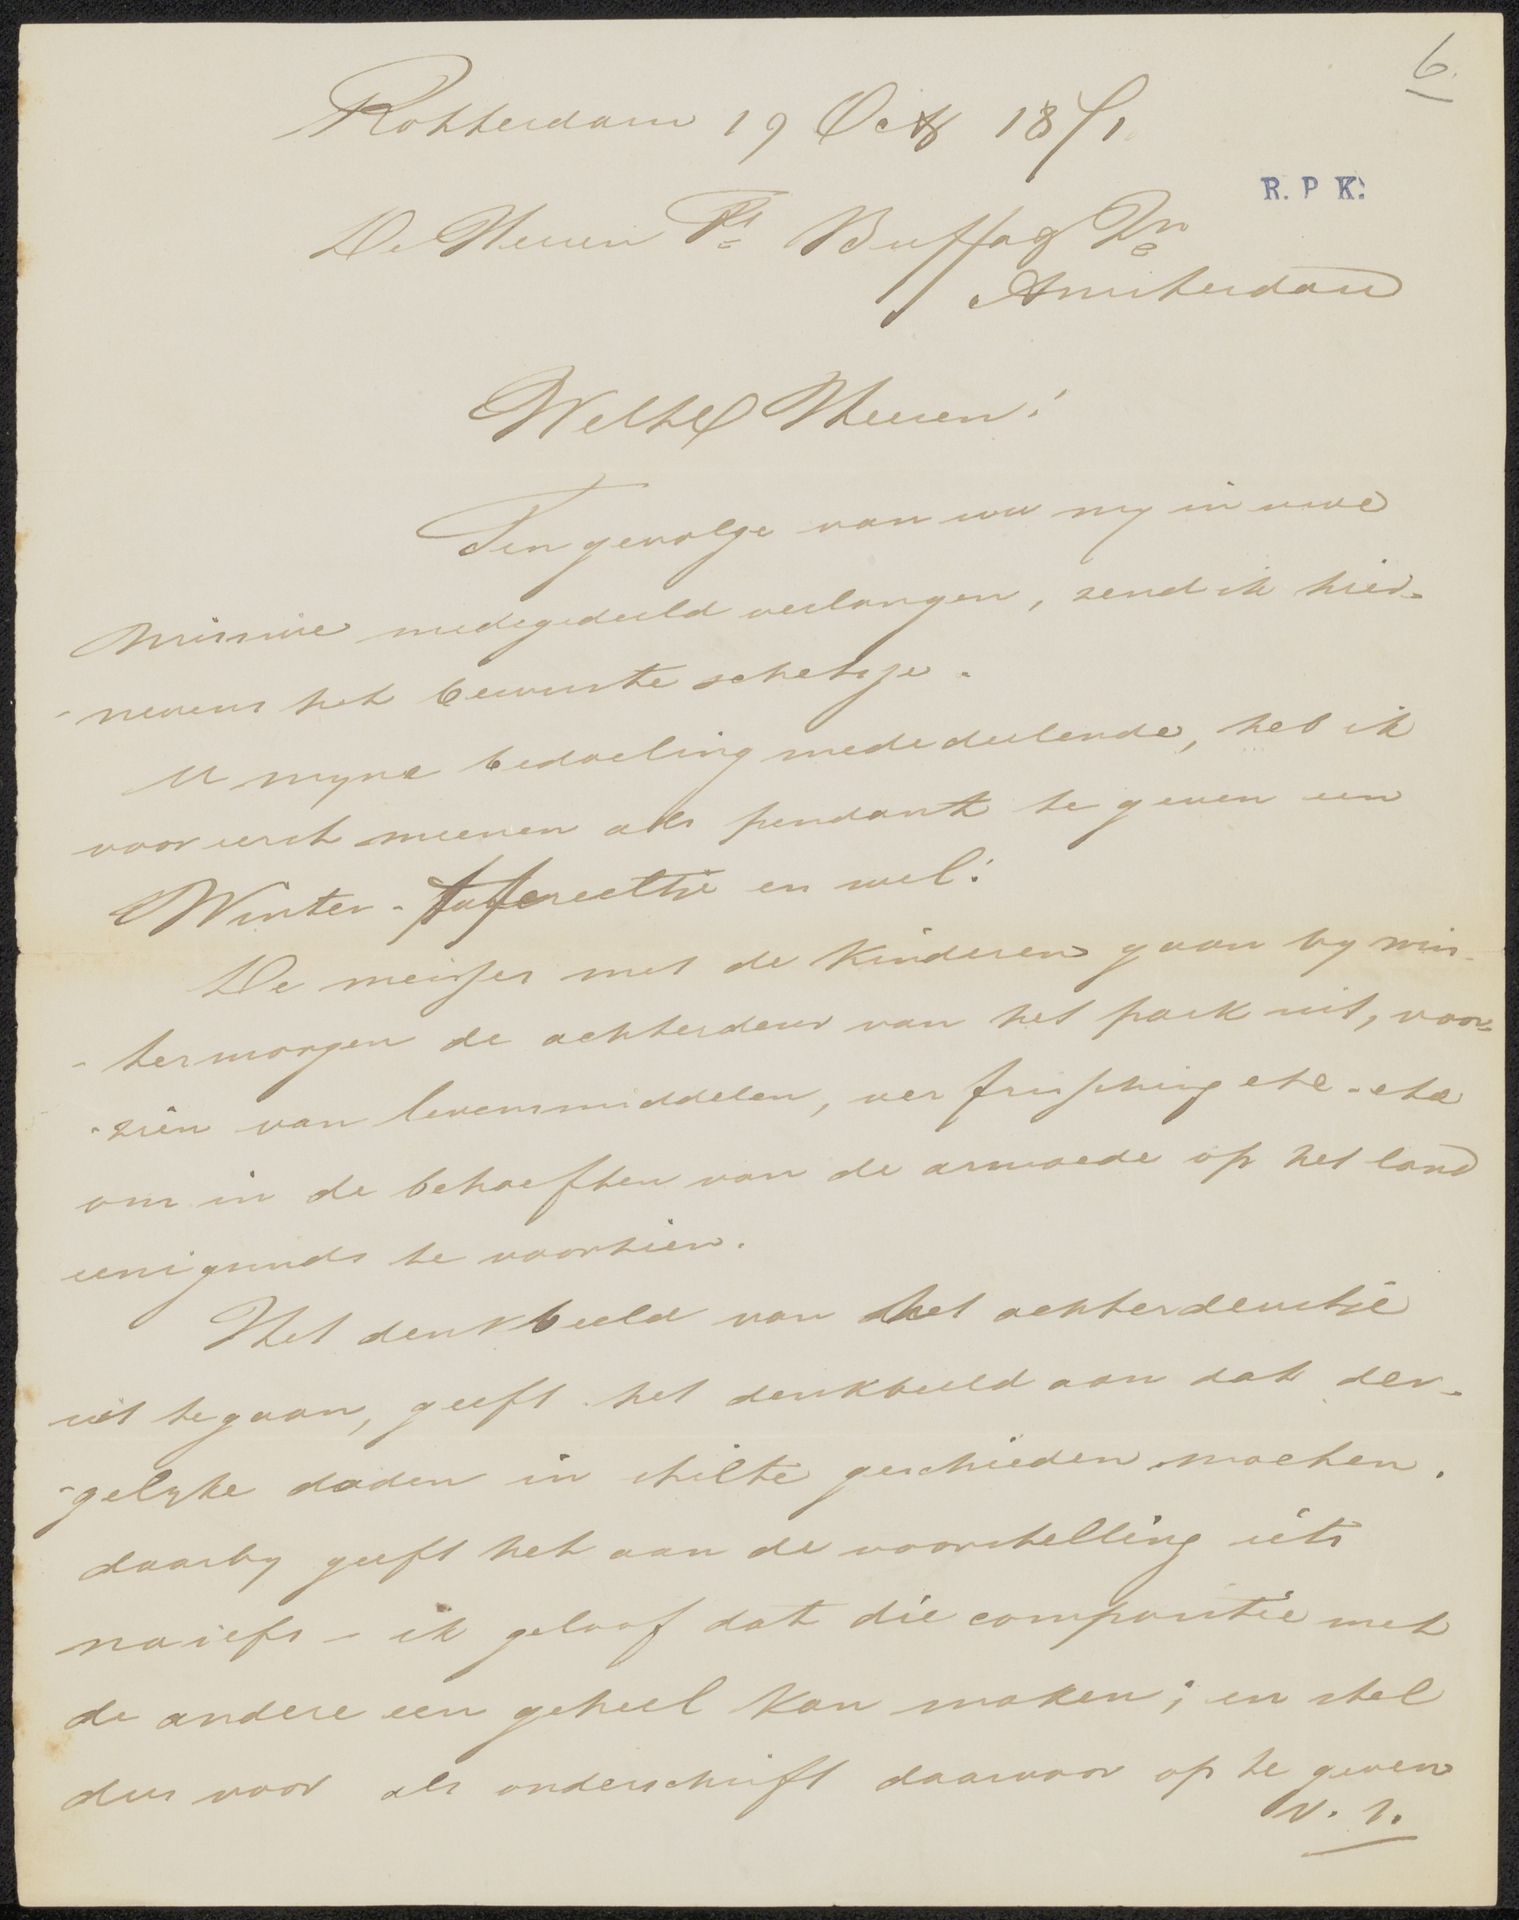 6.
Rotterdam 19 Octb 1871.
R. P K.
De Heeren Fs Buffa & Zn
Amsterdam
WelEd Heeren!
Ten gevolge van uw my in uwe
missive medegedeeld verlangen, zend ik hier-
-nevens het bewuste schetsje.
U myne bedoeling mededeelende, heb ik
vooreerst meenen als pendant te geven een
Winter-tafereeltje en wel:
De meisjes met de kinderen gaan by win-
-termorgen de achterdeur van het park uit, voor-
-zien van levensmiddelen, verfrissching etc-etc
om in de behoeften van de armoede op het land
eenigzinds te voorzien.
Het denkbeeld van het achterdeurtje
uit te gaan, geeft het denkbeeld aan dat der-
-gelyke daden in stilte geschieden moeten.
daarby geeft het aan de voorstelling iets
naiefs - ik geloof dat die compositie met
de andere een geheel kan maken; en stel
dus voor als onderschrift daarvoor op te geven
v. s.